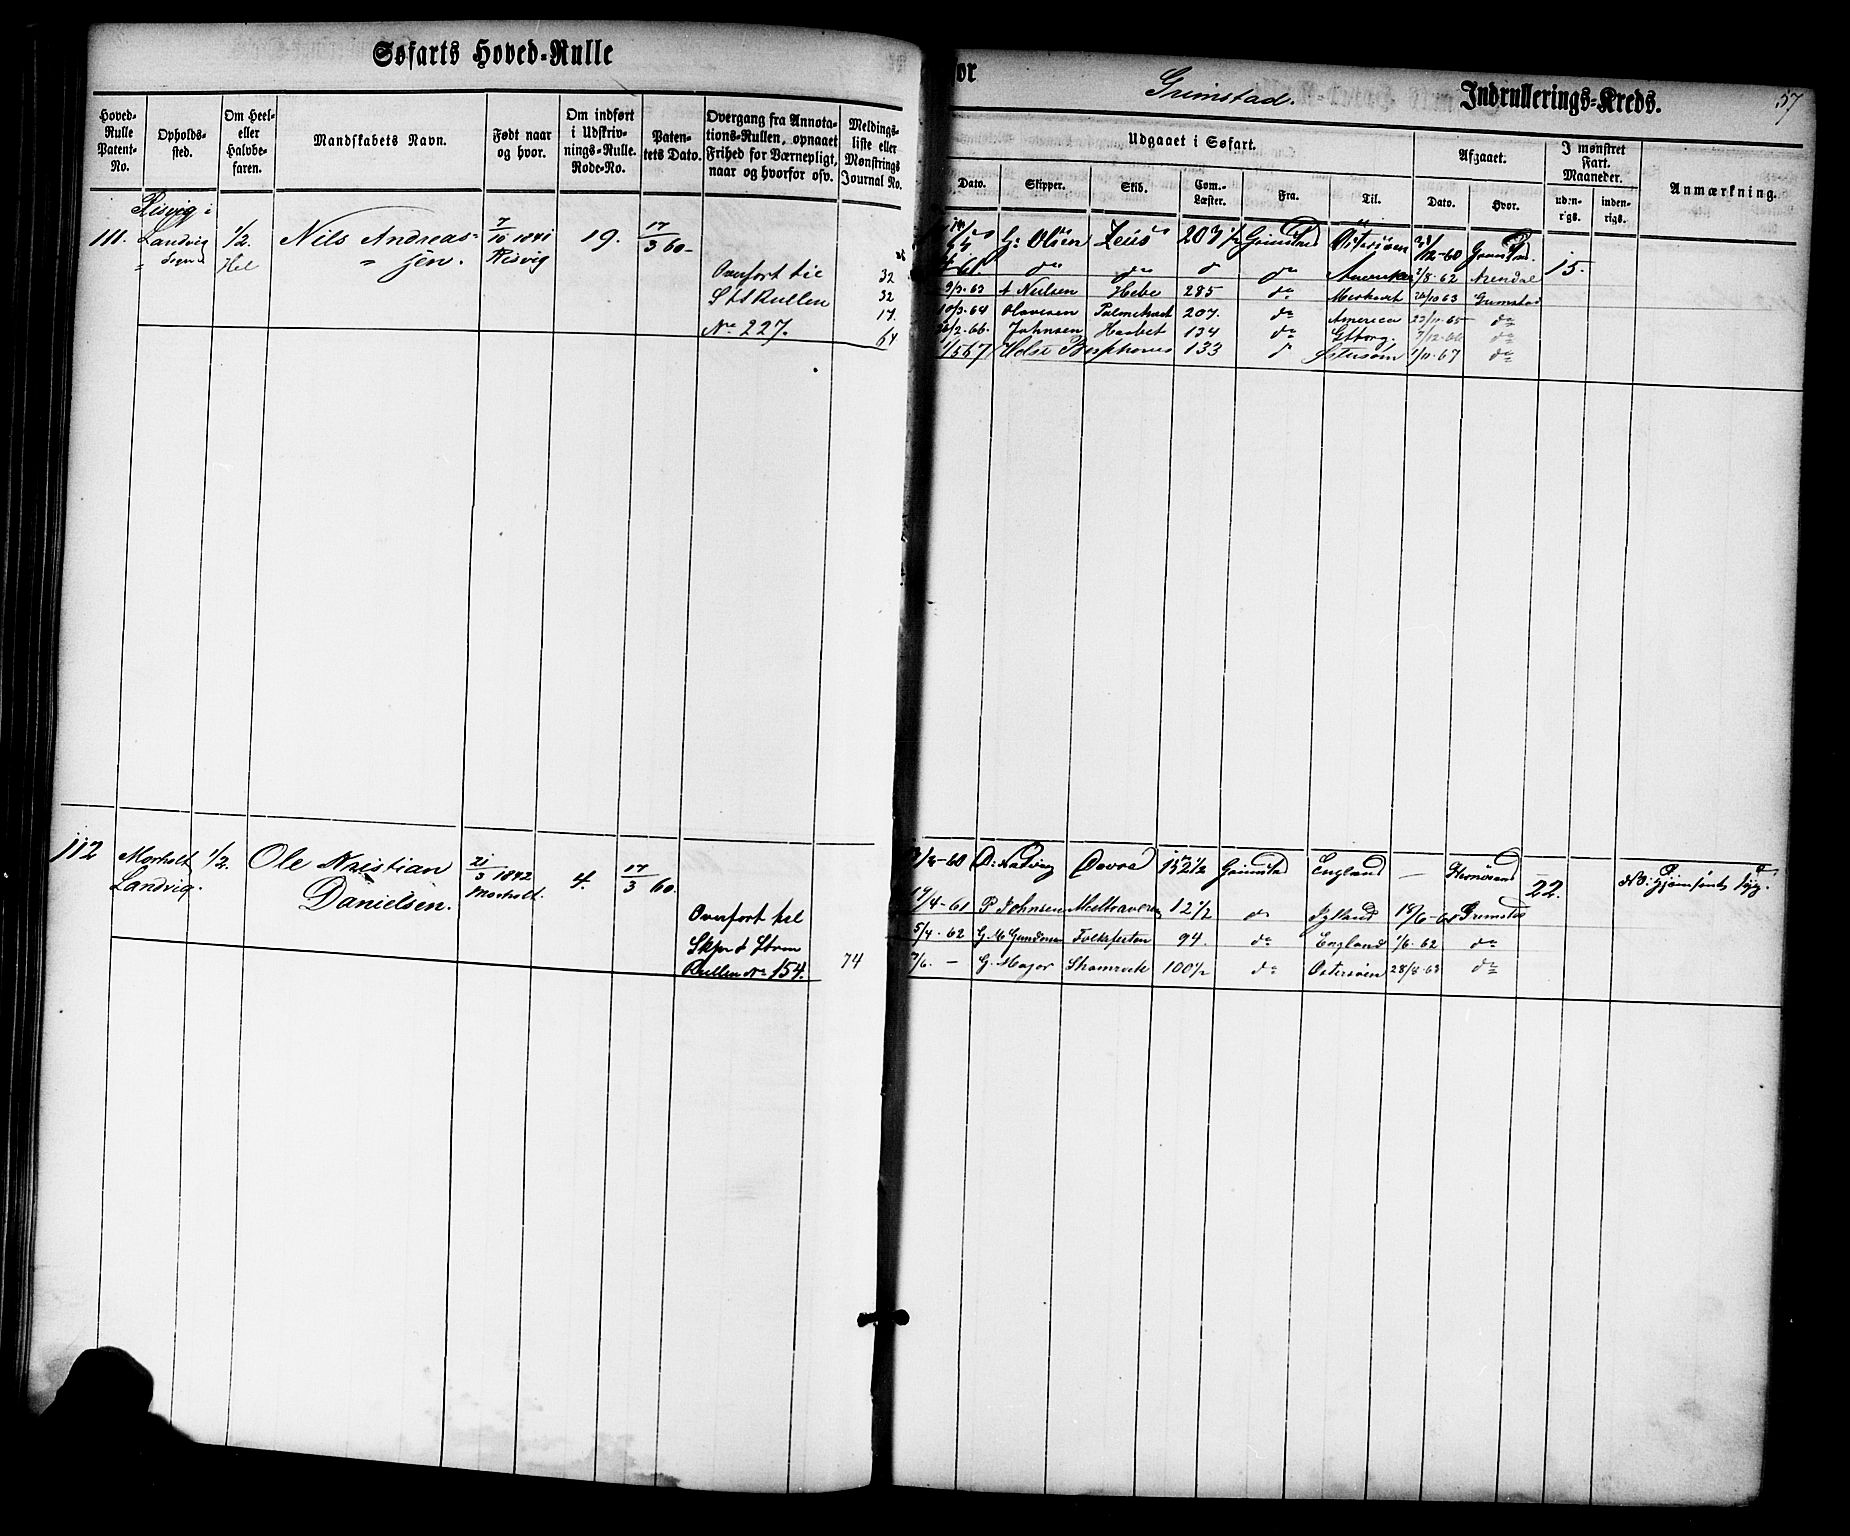 Søfarts Hoved-Rulle
for Grimstad. Indrullerings-Kreds. 57
Hoved-Rulle Patent-No.
Opholds-sted.
Om Heel- eller Halvbe-faren.
Mandskabets Navn.
Født naar og hvor.
Om indført i Udskriv-nings-Rulle. Rode-No.
Paten-tets Dato.
Overgang fra Annota-tions-Rullen, opnaaet Frihed for Værnepligt, naar og hvorfor osv.
Meldings-liste eller Mønstrings Journal No.
Udgaaet i Søfart.
Dato.
Skipper.
Skib.
Com.-Læster.
Fra.
Til.
Afgaaet.
Dato.
Hvor.
I mønstret Fart. Maaneder.
uden-rigs.
inden-rigs.
Anmærkning.
111. Resvig i Landvig Sogn 1/2 Hel Nils Andreas-sen. 7/10 1841 Resvig 19. 17/3 60
Overført til
St & Rullen
No 227.
32
32
17
64
G: Olsen Zeus 203 1/2 Grimstad Østersøen /12-60 Grimstad 15.
61 do do do do Amerika 2/8-62 Arendal
9/3-63 A Nielsen Hebe 285 do 26/10 63 Grimstad
10/3-64 Olavesen 207. do America 23/11-65 do
/2-66. Johnsen Haabet 134 do Gtborg. 3/12-66 do
1/5 67 Bosphorus 133 do Østersøen 1/11-67 do
112 Morholt Landvig. 1/2. Ole Kristian Danielsen. 21/3 1842 Morholt. 4. 17/3 60.
Overført til
Skpr & Strm
Rullen No 154.
74
/8-60 Dovre 152 1/2 Grimstad England — 22.
17/4-61 P Johnsen 12 1/2 do Jylland 18/6-61 Grimstad
5/4-62 G. M Gundersen Folkesten 94. do England 1/6-62 do
7/6. — G. Major Shamrock 100 1/2 do Østersøen 28/8-63 do